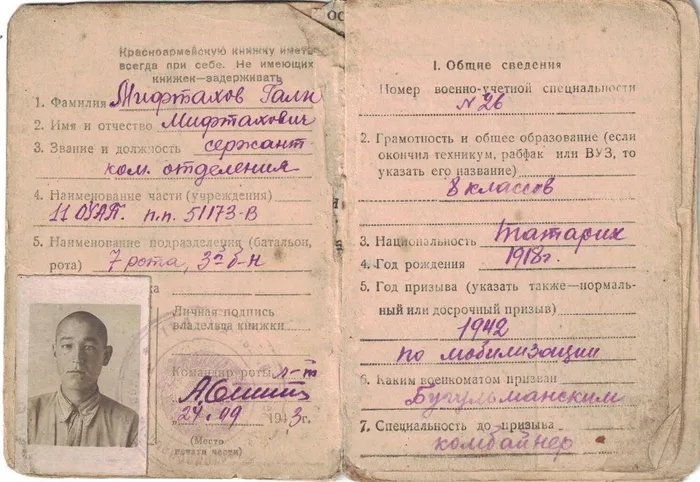 Красноармейскую книжку иметь
всегда при себе. Не имеющих
книжек—задерживать
1. Фамилия Мифтахов Гали
2. Имя и отчество Мифтахович
3. Звание и должность сержант
ком. отделения
4. Наименование части (учреждения)
п.п. 51173-В
5. Наименование подразделения (батальон,
рота) 7 рота, 3й б-н
Личная подпись
владельца книжки
Командир роты л-т
1943г.
(Место
печати части)
I. Общие сведения
Номер военно-учетной специальности
№26
2. Грамотность и общее образование (если
окончил техникум, рабфак или ВУЗ, то
указать его название)
8 классов
3. Национальность татарин
4. Год рождения 1918г.
5. Год призыва (указать также—нормаль-
ный или досрочный призыв)
1942
по мобилизации
6. Каким военкоматом призван
Бугульманским
7. Специальность до призыва
комбайнер